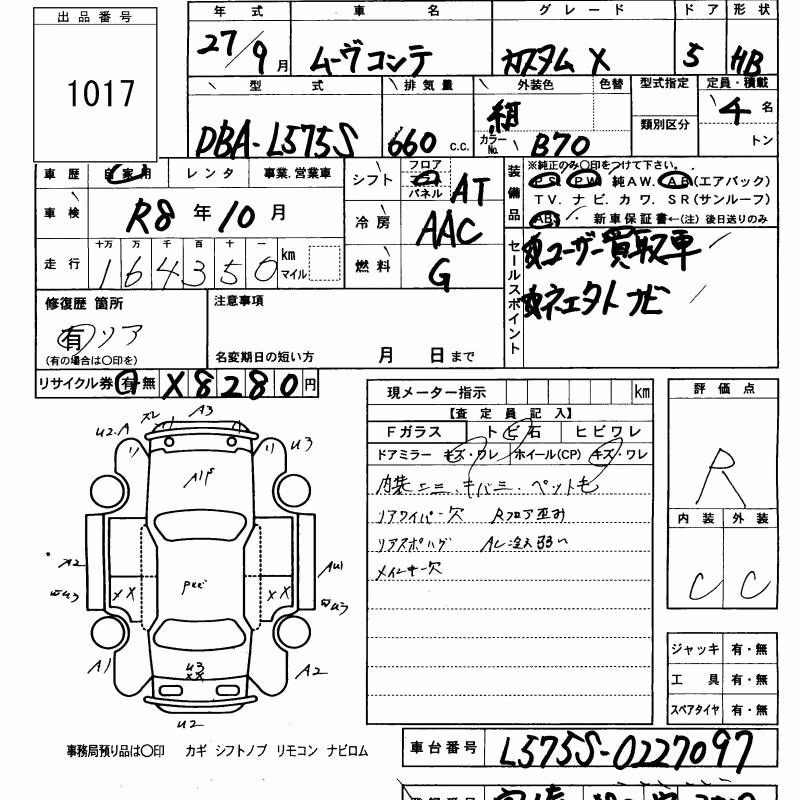 出品番号
1017
年式 車名 グレード ドア 形状
27/9月 ムーヴコンテ カスタムX 5 HB
型式 排気量 外装色 色替 型式指定 定員・積載
DBA-L575S 660 c.c. 紺 カラーNo. B70 類別区分 4名
トン
車歴 自家用 レンタ 事業.営業車
車検 R8年10月
走行 十万 万 千 百 十 一 km マイル
164350
シフト フロア コラ パネル AT
冷房 AAC
燃料 G
装備品 ※純正のみ〇印をつけて下さい。
PS. PW. 純AW. AB(エアバック)
TV. ナビ. カワ. SR(サンルーフ)
ABS. 新車保証書←(注)後日送りのみ
セールスポイント
ユーザー買取車
ナビ
修復歴 箇所
有 リア
(有の場合は〇印を)
注意事項
名変期日の短い方 月 日まで
リサイクル券 有・無 ×8280円
現メーター指示 km
【査定員記入】
Fガラス トビ石 ヒビワレ
ドアミラー キズ・ワレ ホイール(CP) キズ・ワレ
内装 ペット毛
リアワイパー欠 Rフロア歪み
評価点
R
内装 外装
C C
ジャッキ 有・無
工具 有・無
スペアタイヤ 有・無
A3
U2.A U3
A1P
A2 AU1
U3 XX XX U3
A1 U3 XX A2
U2
事務局預り品は〇印 カギ シフトノブ リモコン ナビロム
車台番号 L575S-0227097